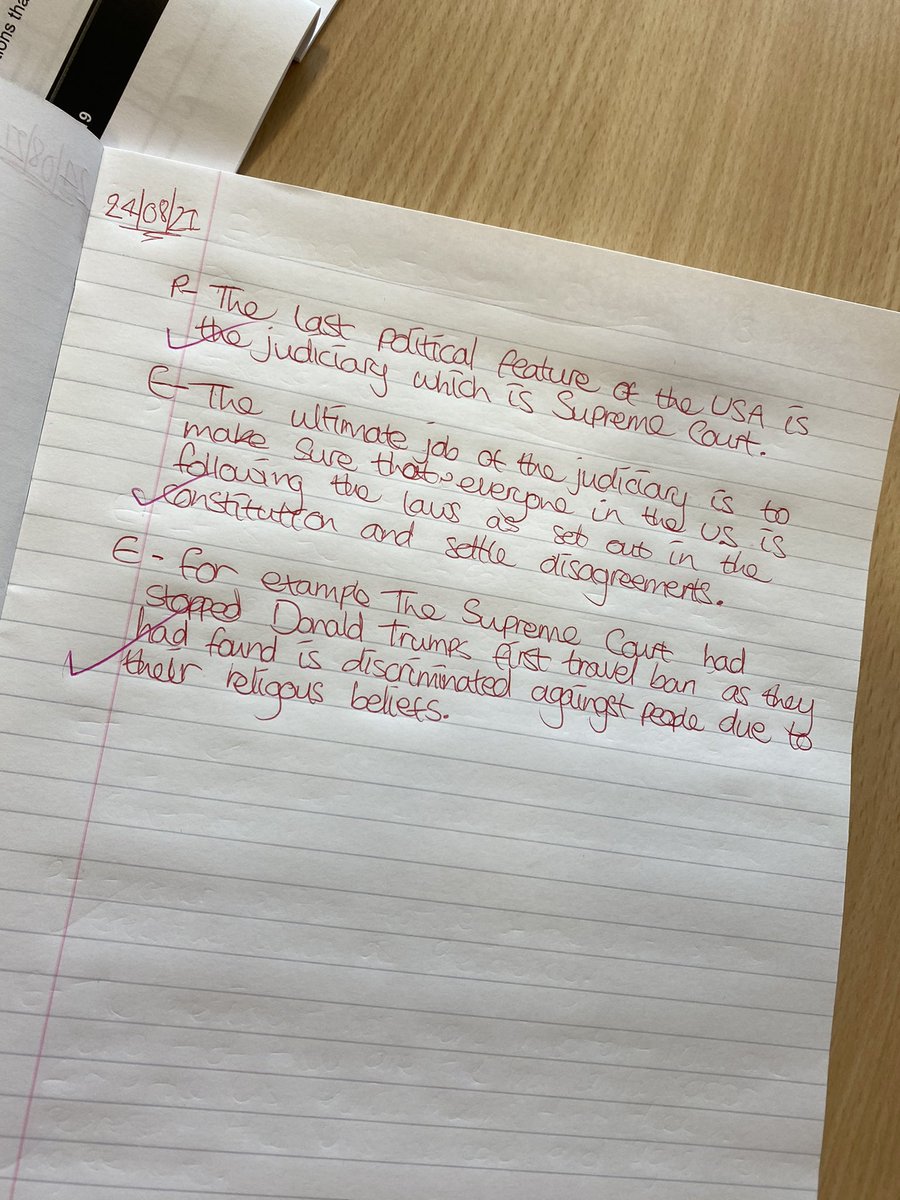 ions tha
9
24/08/21
P- The last political feature of the USA is
the judiciary which is Supreme Court.
E- The ultimate job of the judiciary is to
make sure that everyone in the US is
following the laws as set out in the
constitution and settle disagreements.
E - for example The Supreme Court had
stopped Donald Trumps first travel ban as they
had found is discriminated against people due to
their religous beliefs.